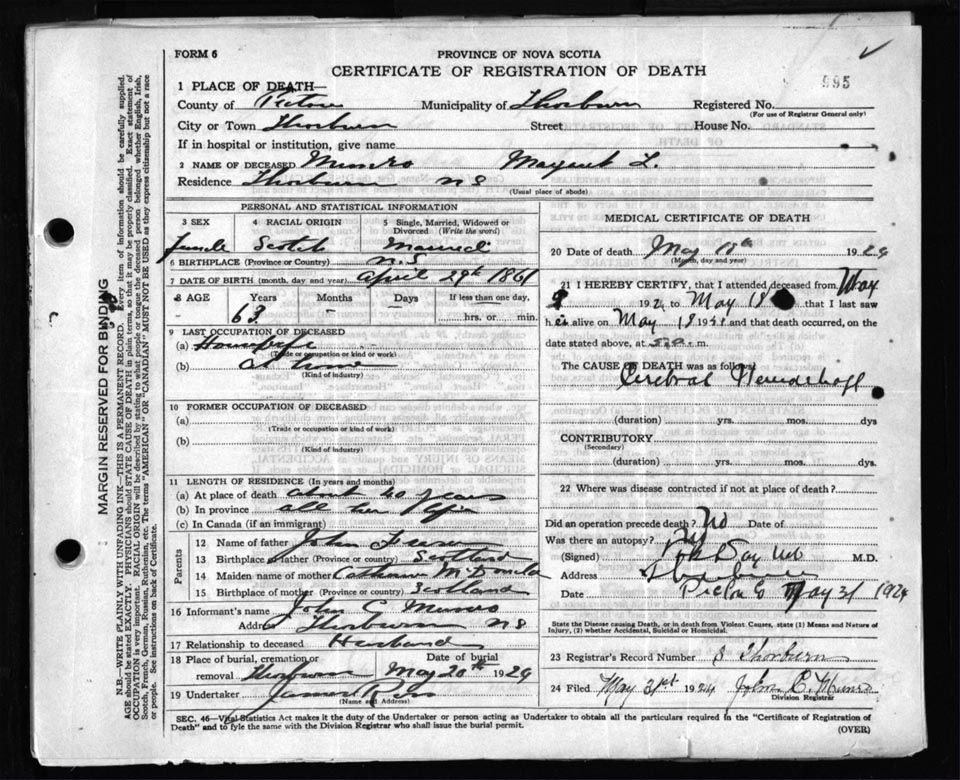 FORM 6
PROVINCE OF NOVA SCOTIA
CERTIFICATE OF REGISTRATION OF DEATH
595
1 PLACE OF DEATH—
County of Pictou Municipality of Thorburn Registered No.
(For use of Registrar General only)
City or Town Thorburn Street House No.
If in hospital or institution, give name
2 NAME OF DECEASED Munro Margaret L.
Residence Thorburn NS
(Usual place of abode)
PERSONAL AND STATISTICAL INFORMATION
3 SEX 4 RACIAL ORIGIN 5 Single, Married, Widowed or Divorced (Write the word)
female Scotch Married
6 BIRTHPLACE (Province or Country) N.S
7 DATE OF BIRTH (month, day and year) April 29th 1861
8 AGE Years Months Days If less than one day,
63 - hrs. or min.
9 LAST OCCUPATION OF DECEASED
(a) Housewife
(Trade or occupation or kind or work)
(b) at home
(Kind of industry)
10 FORMER OCCUPATION OF DECEASED
(a)
(Trade or occupation or kind of work)
(b)
(Kind of industry)
11 LENGTH OF RESIDENCE (In years and months)
(a) At place of death about 40 years
(b) In province all her life
(c) In Canada (if an immigrant)
Parents
12 Name of father John Fraser
13 Birthplace of father (Province or country) Scotland
14 Maiden name of mother Catherine McDonald
15 Birthplace of mother (Province or country) Scotland
16 Informant's name John C Munro
Address Thorburn NS
17 Relationship to deceased Husband
18 Place of burial, cremation or Date of burial
removal Thorburn May 20th 1924
19 Undertaker James Ross
(Name and Address)
MEDICAL CERTIFICATE OF DEATH
20 Date of death May 18th 1924
(Month, day and year)
21 I HEREBY CERTIFY, that I attended deceased from May
192 to May 18 that I last saw
her alive on May 18 19 and that death occurred, on
date stated above, at m.
The CAUSE OF DEATH was as follows
Cerebral
(duration) yrs. mos. dys
CONTRIBUTORY
(Secondary)
(duration) yrs. mos. dys.
22 Where was disease contracted if not at place of death?
Did an operation precede death? No Date of
Was there an autopsy?
(Signed) M.D.
Address Thorburn
Date Pictou Co May 21 1924
State the Disease causing Death, or in death from Violent Causes, state (1) Means and Nature of
Injury, (2) whether Accidental, Suicidal or Homicidal.
23 Registrar's Record Number 8 Thorburn
24 Filed May 21st 1924 John C. Munro
Division Registrar
SEC. 46—Vital Statistics Act makes it duty of the Undertaker or person acting as Undertaker to obtain all the particulars required in the "Certificate of Registration of
Death" and to fyle the same with the Division Registrar who shall issue the burial permit.
(OVER)
MARGIN RESERVED FOR BINDING
N.B.—WRITE PLAINLY WITH UNFADING INK—THIS IS A PERMANENT RECORD. Every item of information should be carefully supplied.
AGE should be stated EXACTLY. PHYSICIANS should STATE CAUSE OF DEATH in plain terms, so that it may be properly classified. Exact statement of
OCCUPATION is very important. RACIAL ORIGIN will be described by stating to what people or tongue the deceased person belonged whether English, Irish,
Scotch, French, German, Russian, Ruthenian, etc. The terms "AMERICAN" OR "CANADIAN" MUST NOT BE USED as they express citizenship but not a race
or people. See instructions on back of Certificate.